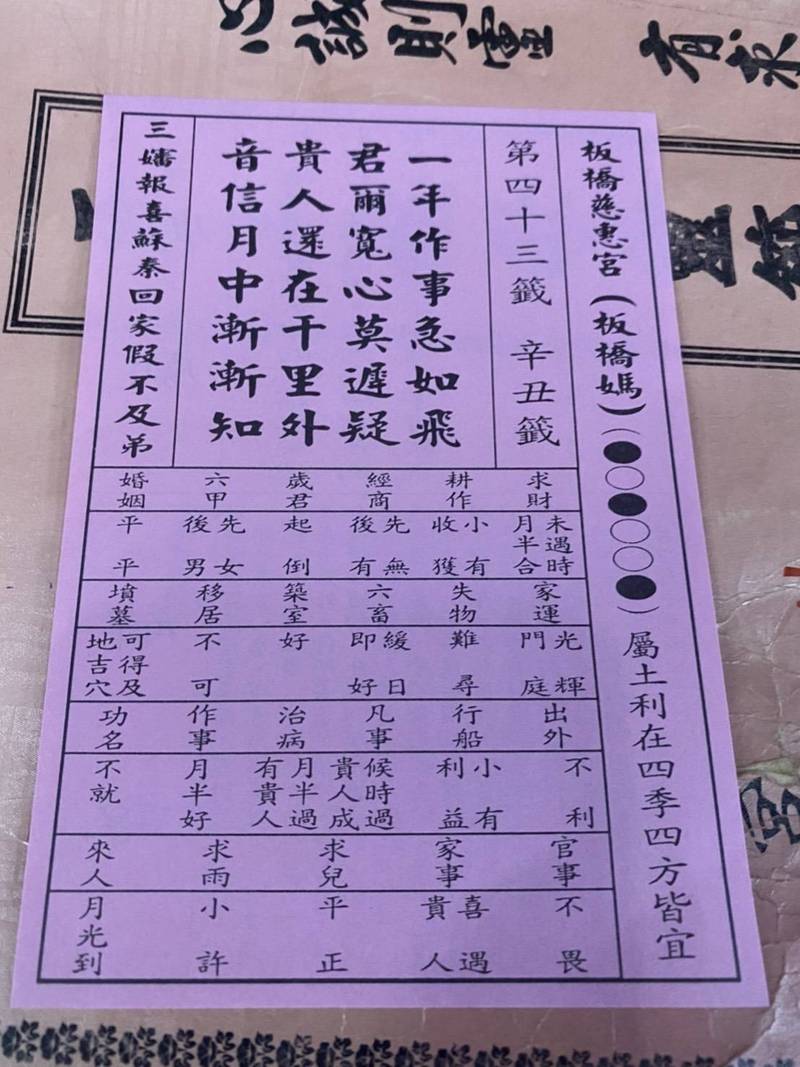 心誠則靈
有求
板橋慈惠宮(板橋媽)(●○●○○●)屬土利在四季四方皆宜
第四十三籤 辛丑籤
一年作事急如飛
君爾寬心莫遲疑
貴人還在千里外
音信月中漸漸知
三嬸報喜蘇秦回家假不及弟
求財 耕作 經商 歲君 六甲 婚姻
未遇時月半合 小有收獲 先無後有 起倒 先女後男 平平
家運 失物 六畜 築室 移居 墳墓
光輝門庭 難尋 緩日即好 好 不可 可得及地吉穴
出外 行船 凡事 治病 作事 功名
不利 小有利益 候時過貴人成 月半過有貴人 月半好 不就
官事 家事 求兒 求雨 來人
不畏 喜遇貴人 平正 小許 月光到